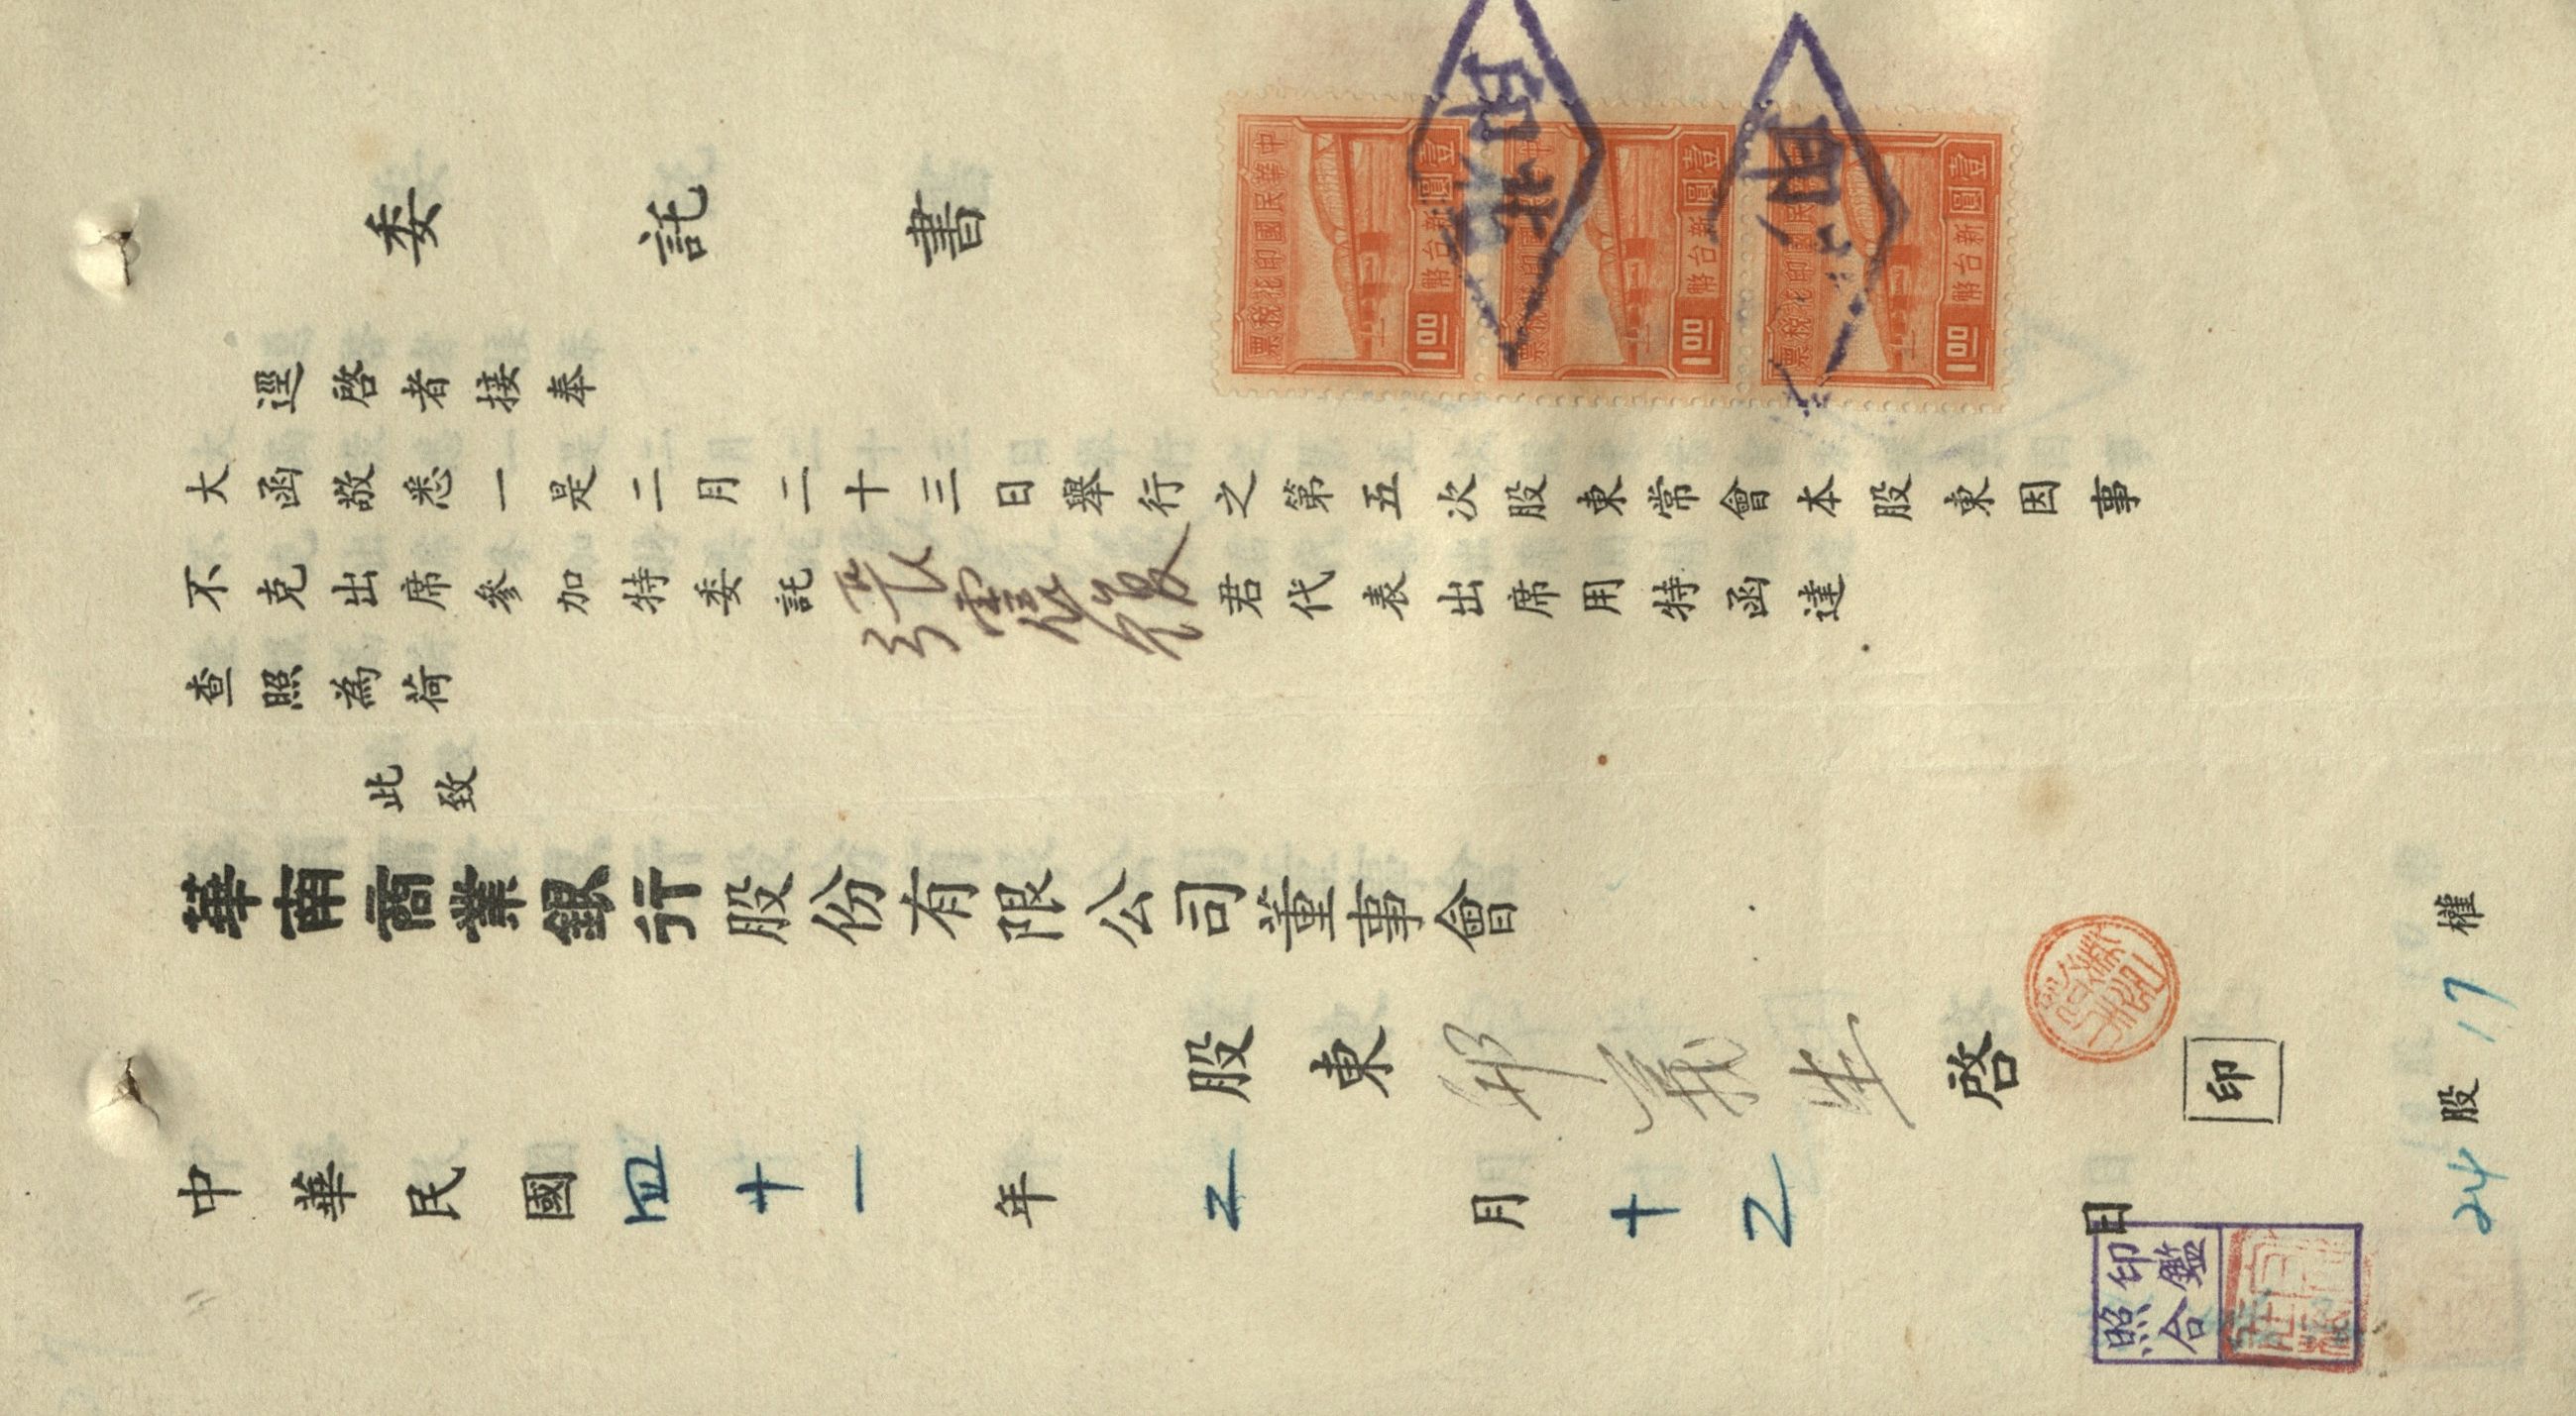 委託書
逕啓者接奉
大函敬悉一是二月二十三日舉行之第五次股東常會本股東因事
不克出席參加特委託張君代表出席用特函達
查照為荷
此致
華南商業銀行股份有限公司董事會
股東 義生 啓 印
中華民國四十一年2月十2日
24股17權
印鑑
照合
中華民國印花稅票
壹圓
新台幣
1.00
中華民國印花稅票
壹圓
新台幣
1.00
中華民國印花稅票
壹圓
新台幣
1.00